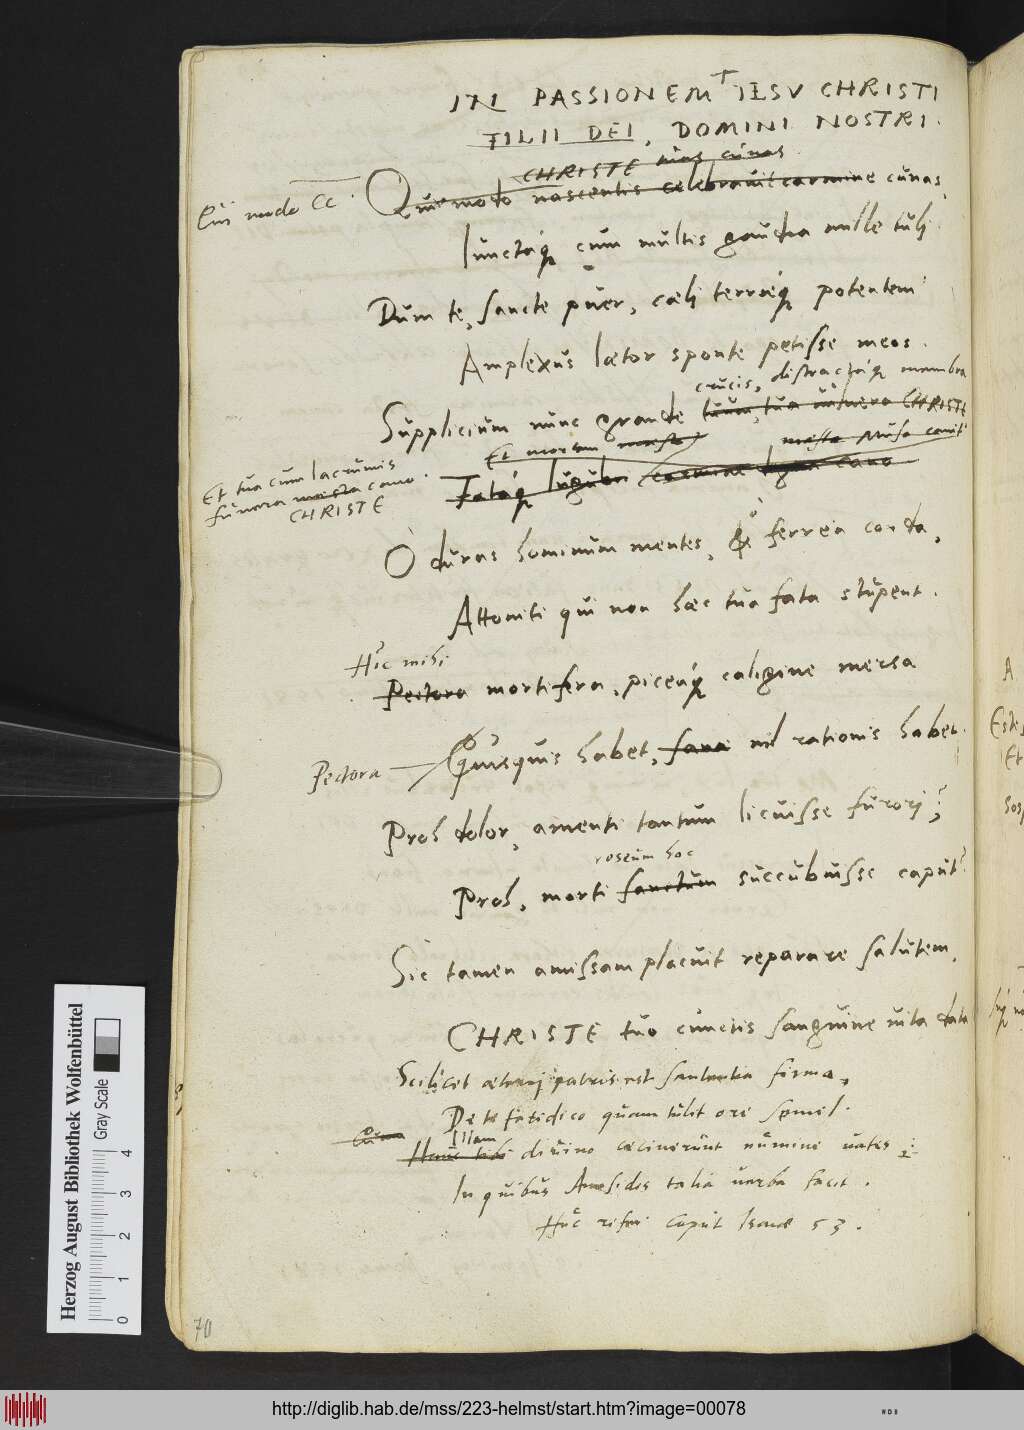 IN PASSIONEM IESV CHRISTI
FILII DEI, DOMINI NOSTRI.
CHRISTE tuas cunas
Qui modo CC.
Qui modo nascentis celebravit carmine cunas,
Iunctaq́; cum multis gaudia mille tulj.
Dum te, sancte puer, cœlj terræq́; potentem
Amplexus lætor sponte petisse meos.
crucis, distractáq; membra
Supplicium nunc grande tuum, tua vulnera CHRISTE
Et mortem mæsto mæsta Musa
Et tua cum lacrumis
funera mæsta cano.
CHRISTE
Fataq́; lugubri carmine cano
O duras hominum mentes, ô ferrea corda,
Attoniti qui non hæc tua fata stupent.
Hic mihi
Pectora mortifera, piceaq́; caligine mersa
Pectora
Quisquis habet, sana nil rationis habet.
Proh dolor, amenti tantum licuisse furorj;
roseum hoc
Proh, morti sanctum succubuisse caput?
Sic tamen amissam placuit reparare salutem,
CHRISTE tuo cunctis sanguine vita data
Scilicet æternj patris est sententia firma,
De te fatidico quam tulit ore semel.
Illam
Hanc tibi divino cecinerunt numine vates
In quibus Amosides talia verba facit.
Huc caput Isaiæ 53.
70
Herzog August Bibliothek Wolfenbüttel
Gray Scale
0 1 2 3 4
http://diglib.hab.de/mss/223-helmst/start.htm?image=00078